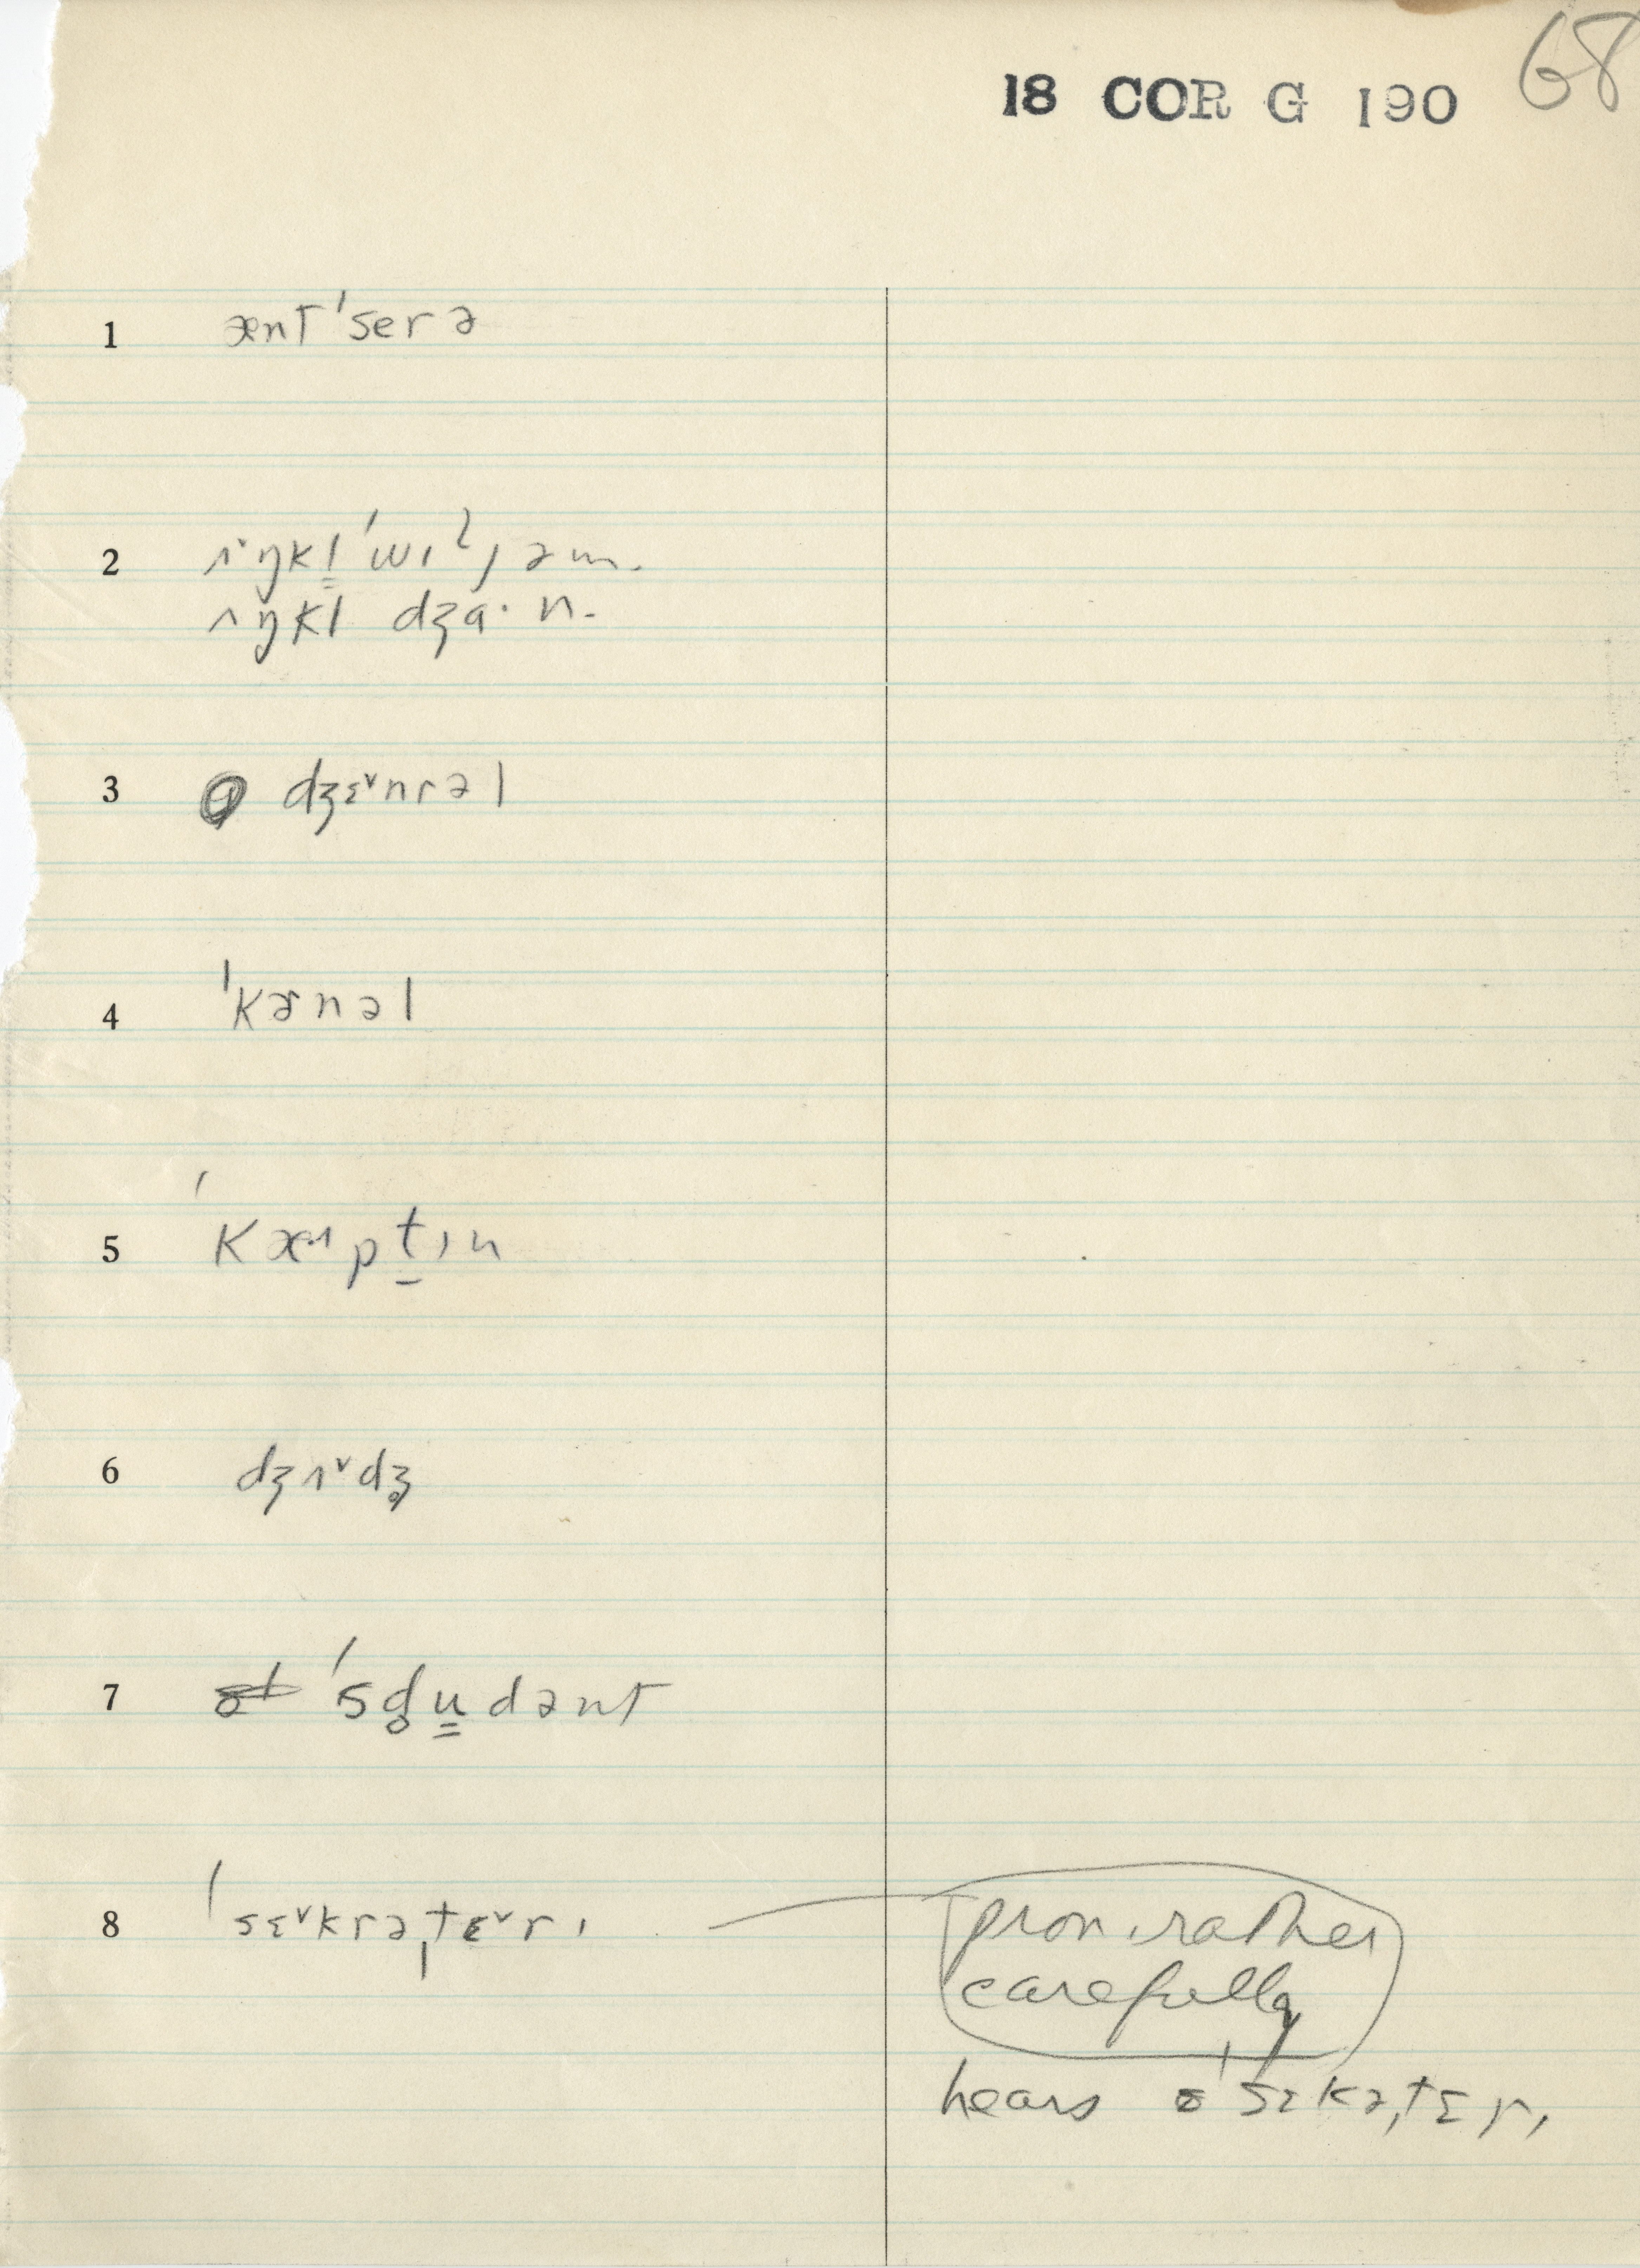 18 COR G 190 68
1 ænt ˈserə
2 ʌ˔ŋkl̳ ˈwɪˡjəm.
ʌŋkl dʒɑ· n.
3 dʒɛ˅nrəl
4 ˈkɚnəl
5 ˈkæ·ᶺpt̠ɪn
6 dʒʌ˅dʒ̥
7 ˈsd̥u̳dənt
8 ˈsɛ˅krəˌtɛ˅rɪ
pron. rather
carefully
hears ˈsɛkəˌtɛrɪ